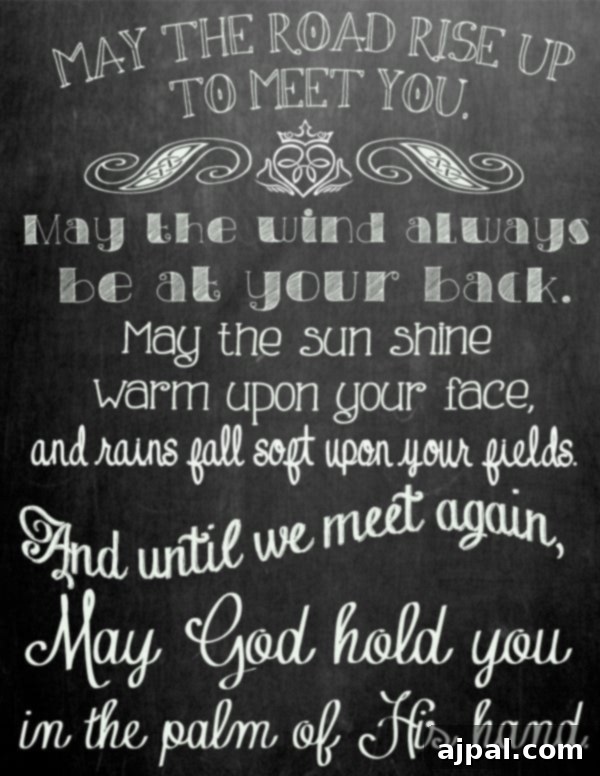 MAY THE ROAD RISE UP
TO MEET YOU.
May the wind always
be at your back.
May the sun shine
warm upon your face,
and rains fall soft upon your fields.
And until we meet again,
May God hold you
in the palm of His hand.
ajpal.com